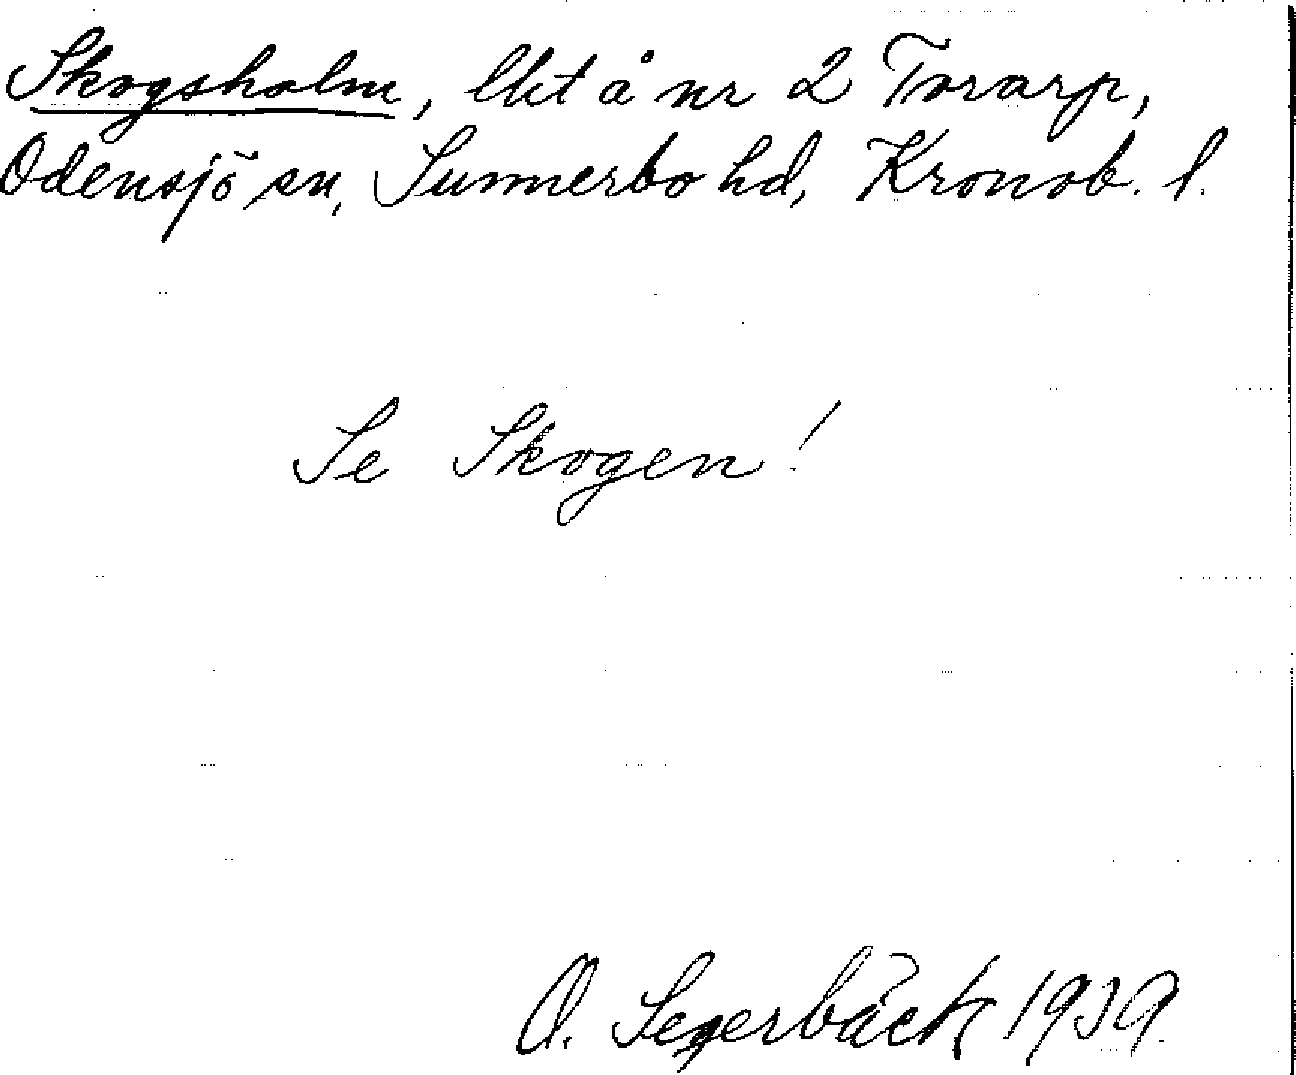 Skogsholm, lht å nr 2 Torarp,
Odensjö sn, Sunnerbo hd, Kronob. l.
Se Skogen!
O. Segerbäck 1939